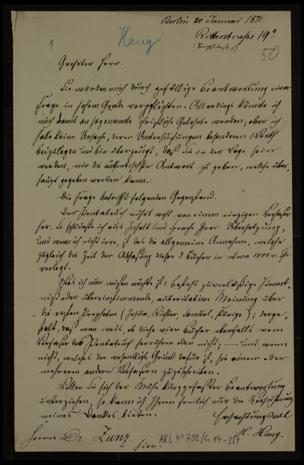 Berlin 20 Januar 1871.
Ritterstraße 19a
Haug
50
Geehrter Herr.
Sie würden mich durch gefällige Beantwortung einer
Frage in hohem Grade verpflichten. Allerdings könnte ich
mich damit an sogenannte christliche Gelehrte wenden, aber ich
habe keine Ursache, deren Untersuchungen besonderen Werth
beizulegen und bin überzeugt, daß Sie in der Lage sein
werden, mir die authentischste Antwort zu geben, welche über-
haupt gegeben werden kann.
Die Frage betrifft folgenden Gegenstand.
Der Pentateuch rührt wohl von einem einzigen Verfasser
her. So schließe ich aus Inhalt und Sprache Ihrer Übersetzung,
und wenn ich nicht irre, ist das die allgemeine Annahme, welche
zugleich die Zeit der Abfassung dieser 5 Bücher in etwa 1000 v. Chr.
verlegt.
Was ich nun wissen möchte ist: besteht zuverlässige Kennt-
niß oder übereinstimmende, autoritative Meinung über
die ersten Propheten (Josua, Richter, Samuel, Könige); derge-
stalt, daß man weiß, ob diese vier Bücher ebenfalls vom
Verfasser des Pentateuch herrühren oder nicht; — und wenn
nicht, welches der wesentliche Grund dafür ist, sie einem oder
mehreren andern Verfassern zuzuschreiben.
Wollen Sie sich der Mühe kurzgefaßter Beantwortung
unterziehen, so kann ich Ihnen freilich nur die Versicherung
meines Dankes bieten.
Hochachtungsvoll
H. Haug.
Herrn Dr. Zunz
hier.
ARC 4° 792/G14-